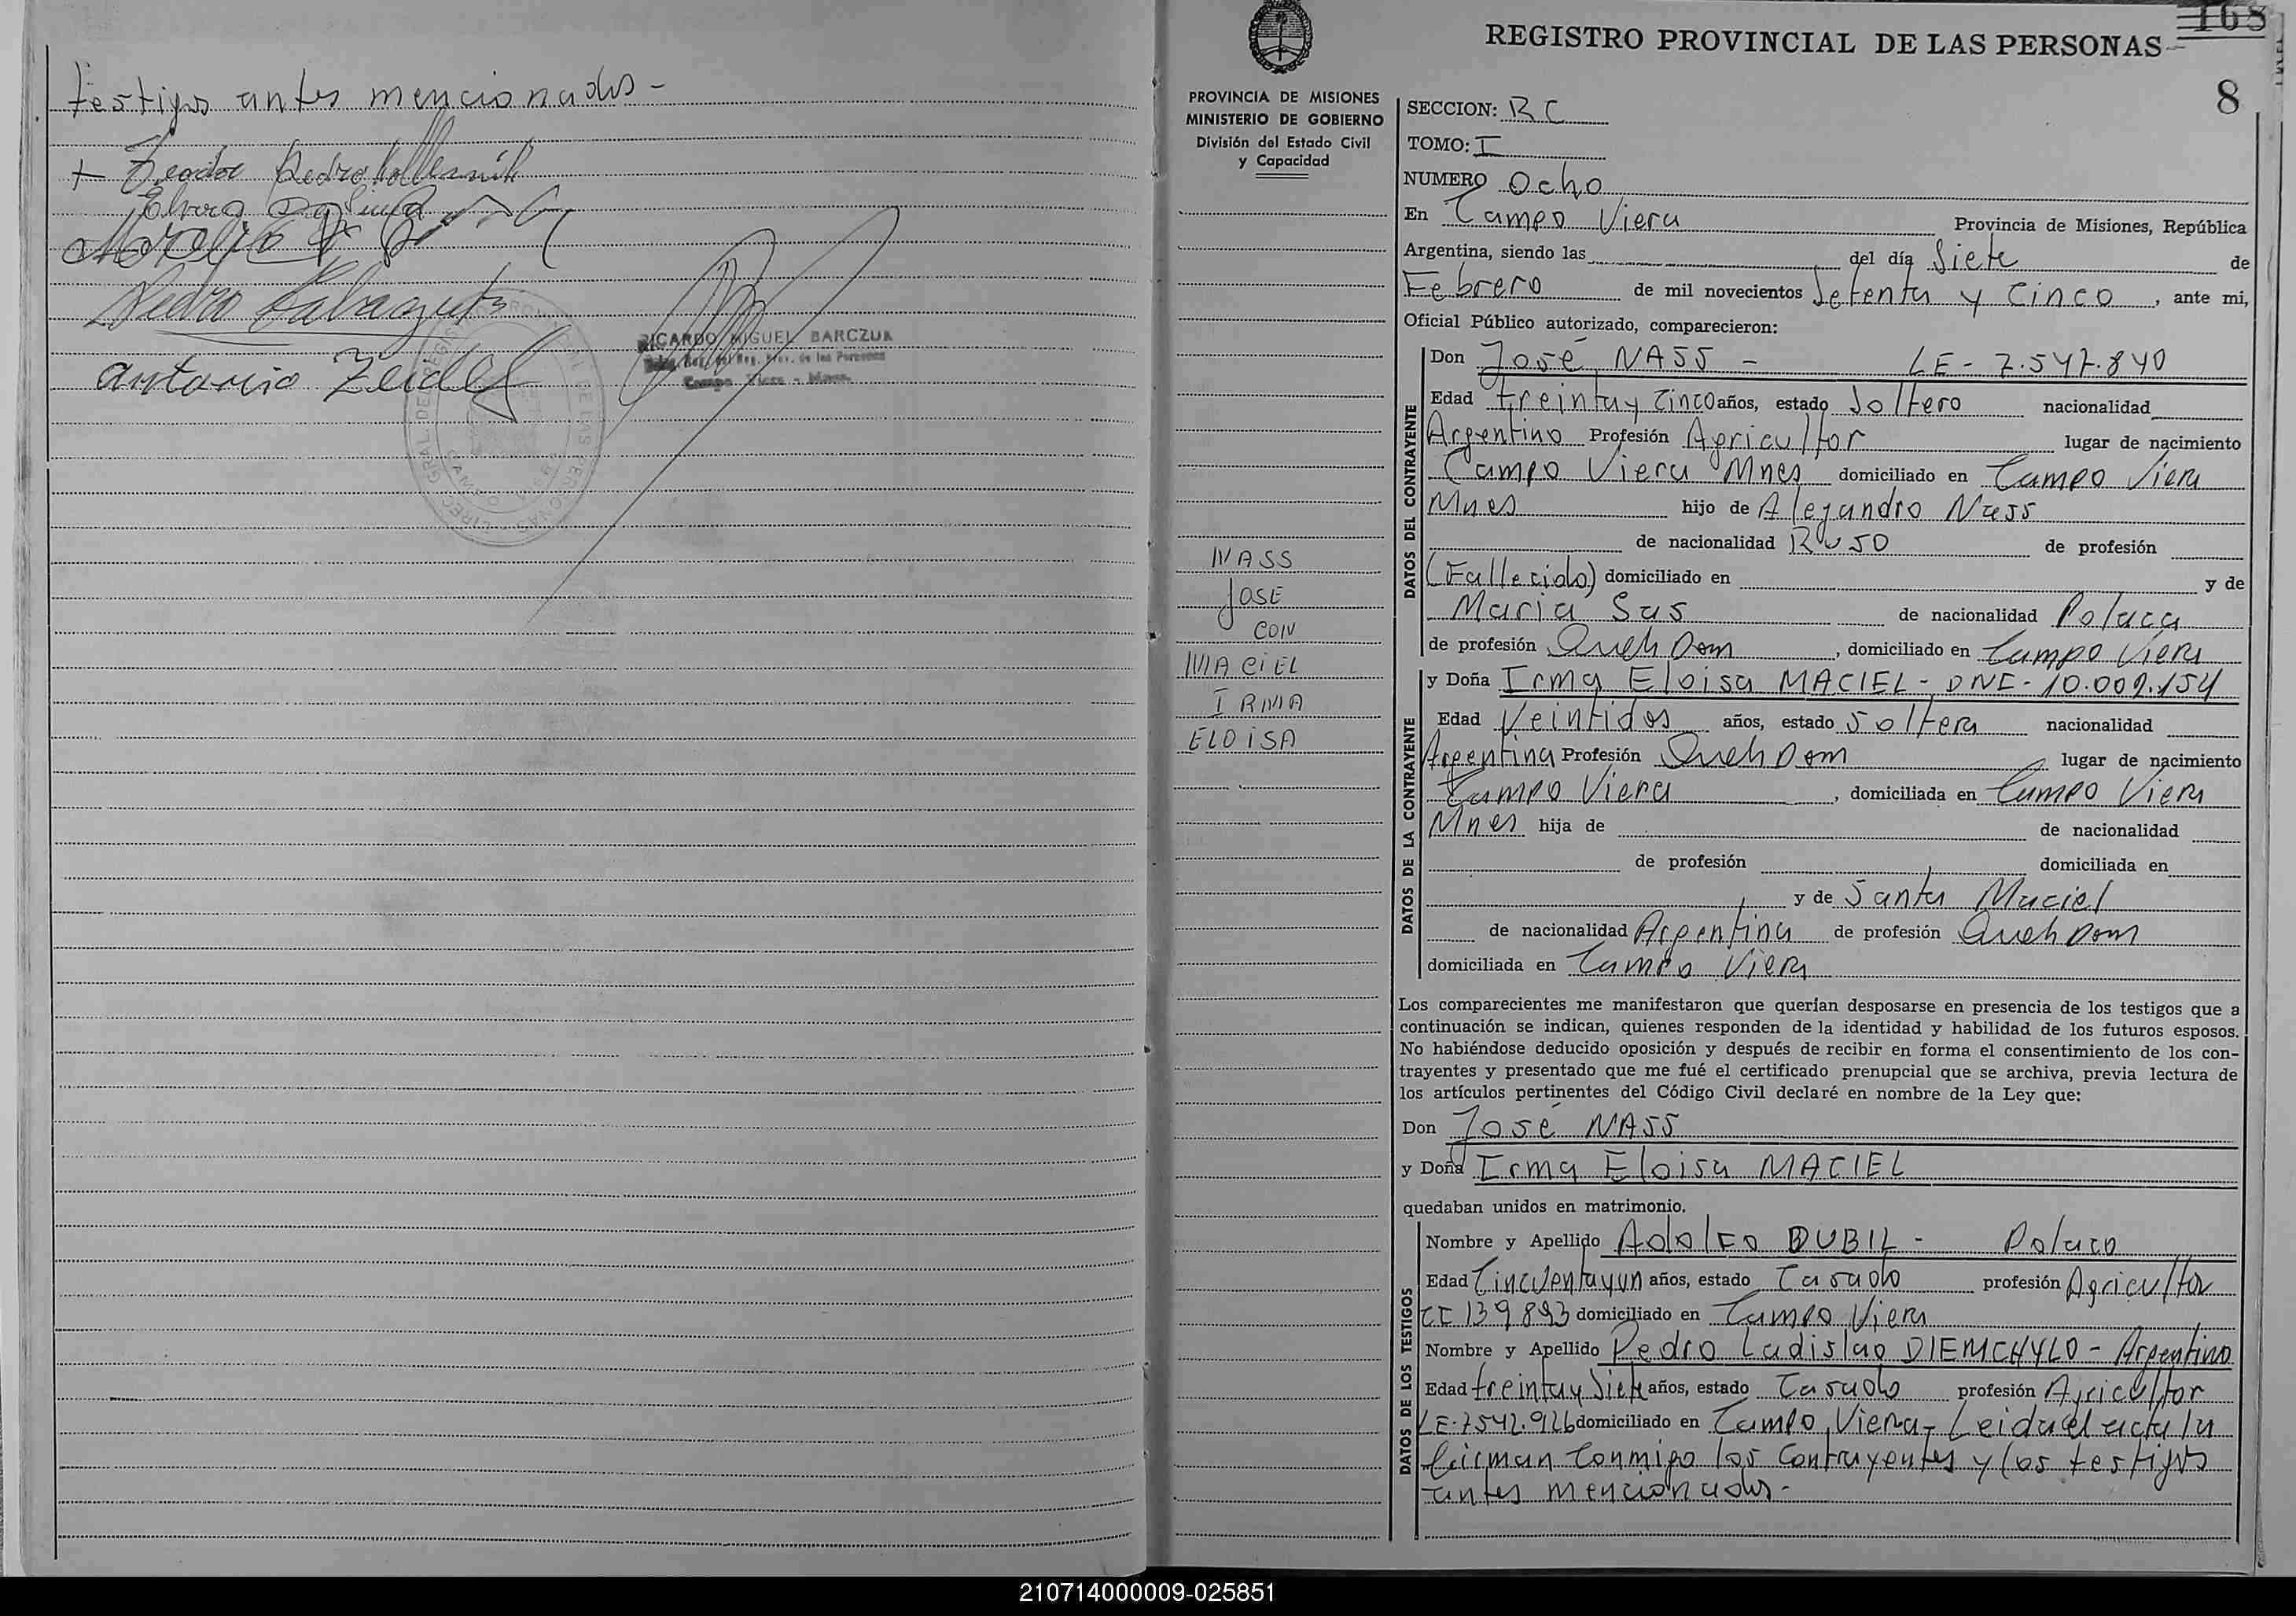 testigos antes mencionados -
+ Teodor Pedro
Elvera
Pedro
antonio Zeidel
RICARDO MIGUEL BARCZUK
Deleg. Reg. del Reg. Prov. de las Personas
Campo Viera - Mnes.
168
REGISTRO PROVINCIAL DE LAS PERSONAS
8
PROVINCIA DE MISIONES
MINISTERIO DE GOBIERNO
División del Estado Civil
y Capacidad
NASS
JOSE
CON
MACIEL
IRMA
ELOISA
SECCION: RC
TOMO: I
NUMERO Ocho
En Campo Viera Provincia de Misiones, República
Argentina, siendo las del día Siete de
Febrero de mil novecientos Setenta y Cinco, ante mi,
Oficial Público autorizado, comparecieron:
DATOS DEL CONTRAYENTE
Don José NASS - LE - 7.547.840
Edad treinta y Cinco años, estado Soltero nacionalidad
Argentino Profesión Agricultor lugar de nacimiento
Campo Viera Mnes domiciliado en Campo Viera
Mnes hijo de Alejandro Nass
de nacionalidad Ruso de profesión
(Fallecido) domiciliado en y de
Maria Sus de nacionalidad Polaca
de profesión Queh Dom, domiciliado en Campo Viera
DATOS DE LA CONTRAYENTE
y Doña Irma Eloisa MACIEL - DNI - 10.009.154
Edad Veintidos años, estado Soltera nacionalidad
Argentina Profesión Queh Dom lugar de nacimiento
Campo Viera, domiciliada en Campo Viera
Mnes hija de de nacionalidad
de profesión domiciliada en
y de Santa Maciel
de nacionalidad Argentina de profesión Queh Dom
domiciliada en Campo Viera
Los comparecientes me manifestaron que querían desposarse en presencia de los testigos que a
continuación se indican, quienes responden de la identidad y habilidad de los futuros esposos.
No habiéndose deducido oposición y después de recibir en forma el consentimiento de los con-
trayentes y presentado que me fué el certificado prenupcial que se archiva, previa lectura de
los artículos pertinentes del Código Civil declaré en nombre de la Ley que:
Don José NASS
y Doña Irma Eloisa MACIEL
quedaban unidos en matrimonio.
DATOS DE LOS TESTIGOS
Nombre y Apellido Adolfo DUBIL - Polaco
Edad Cincuentayun años, estado Casado profesión Agricultor
CI 139893 domiciliado en Campo Viera
Nombre y Apellido Pedro Ladislao DIEMCHYLO - Argentino
Edad treintay Siete años, estado Casado profesión Agricultor
LE-7542.926 domiciliado en Campo Viera - Leida el acta la
firman Conmigo los Contrayentes y los testigos
antes mencionados -
210714000009-025851